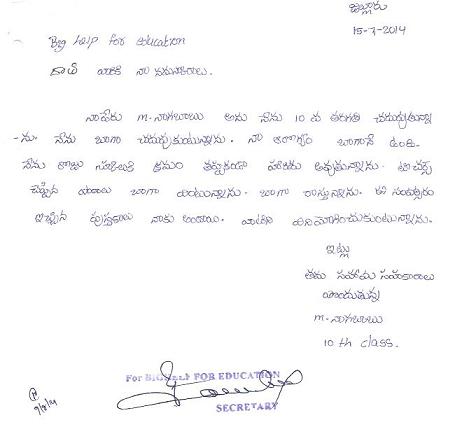 ఏలూరు
15-7-2014
Big Help for education
వారికి నా నమస్కారాలు.
నా పేరు M. నాగబాబు అను నేను 10 వ తరగతి చదువుతున్నా
-ను. నేను బాగా చదువుకుంటున్నాను. నా ఆరోగ్యం బాగానే ఉంది.
నేను రోజు స్కూలుకి క్రమం తప్పకుండా హాజరు అవుతున్నాను. టీచర్స్
చెప్పిన పాఠాలు బాగా వింటున్నాను. బాగా రాస్తున్నాను. ఈ సంవత్సరం
ఇచ్చిన పుస్తకాలు నాకు అందాయి. వాటిని వినియోగించుకుంటున్నాను.
ఇట్లు
తమ సహాయ సహకారాలు
పొందుతున్న
M. నాగబాబు
10 th class.
For BIG HELP FOR EDUCATION
SECRETARY